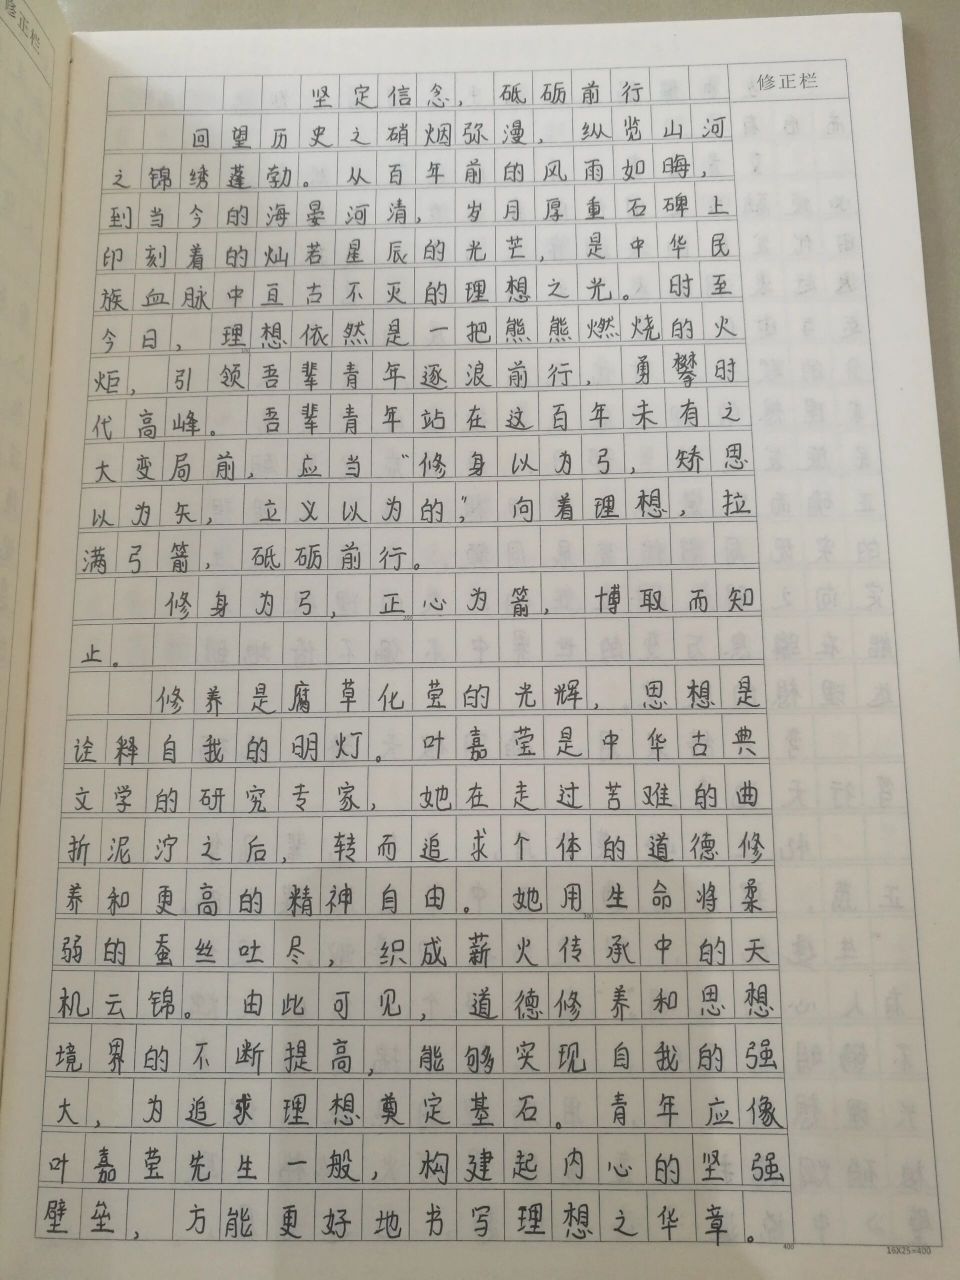 修正栏
修正栏
坚定信念，砥砺前行
回望历史之硝烟弥漫，纵览山河
之锦绣蓬勃。从百年前的风雨如晦，
到当今的海晏河清，岁月厚重石碑上
印刻着的灿若星辰的光芒，是中华民
族血脉中亘古不灭的理想之光。时至
今日，理想依然是一把熊熊燃烧的火
炬，引领吾辈青年逐浪前行，勇攀时
代高峰。吾辈青年站在这百年未有之
大变局前，应当“修身以为弓，矫思
以为矢，立义以为的”，向着理想，拉
满弓箭，砥砺前行。
修身为弓，正心为箭，博取而知
止。
修养是腐草化萤的光辉，思想是
诠释自我的明灯。叶嘉莹是中华古典
文学的研究专家，她在走过苦难的曲
折泥泞之后，转而追求个体的道德修
养和更高的精神自由。她用生命将柔
弱的蚕丝吐尽，织成薪火传承中的天
机云锦。由此可见，道德修养和思想
境界的不断提高，能够实现自我的强
大，为追求理想奠定基石。青年应像
叶嘉莹先生一般，构建起内心的坚强
壁垒，方能更好地书写理想之华章。
400
16X25=400